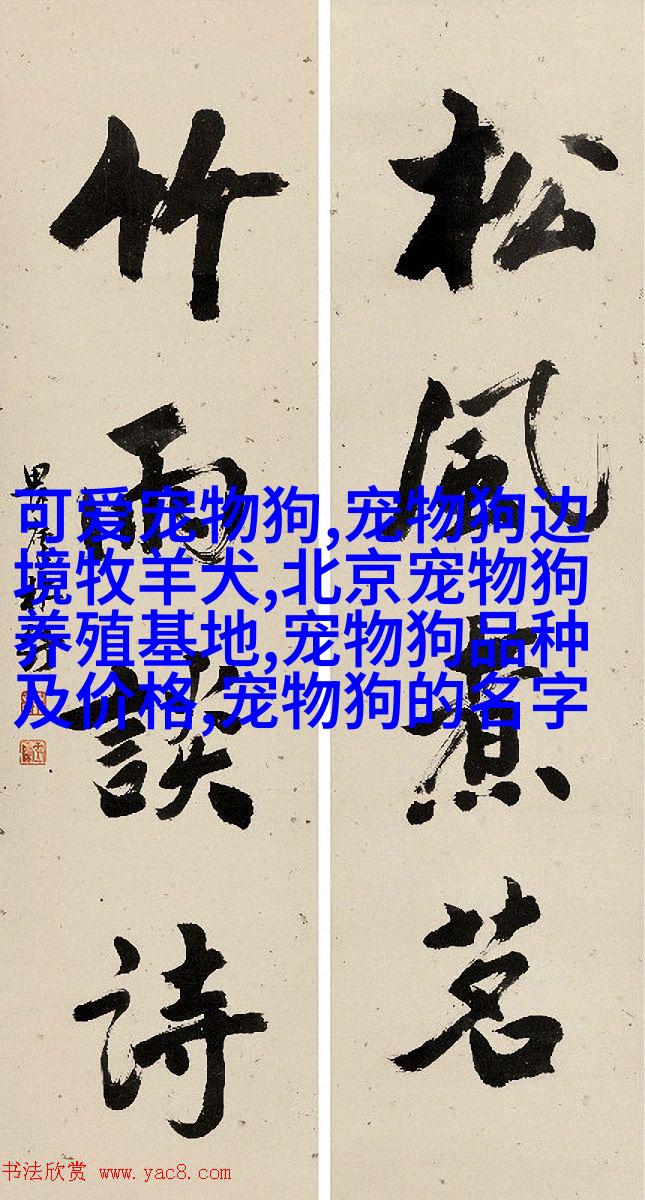 松風煮茗
竹雨談詩
可爱宠物狗,宠物狗边
境牧羊犬,北京宠物狗
养殖基地,宠物狗品种
及价格,宠物狗的名字
书法欣赏 www.yac8.com